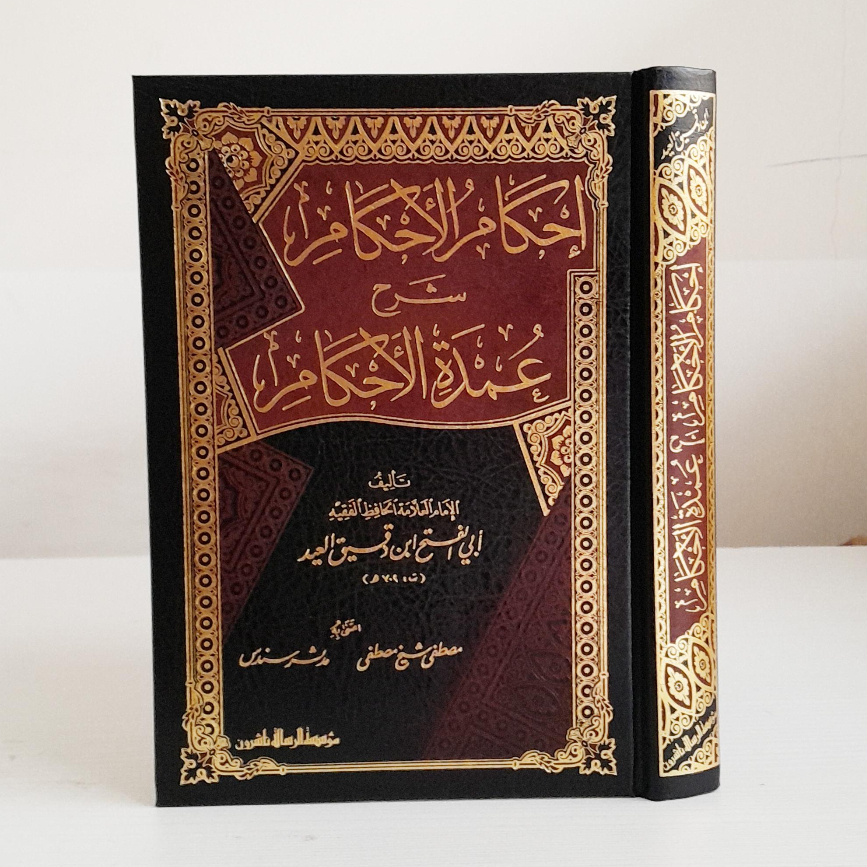 إِحْكَامُ الأَحْكَامِ
شرح
عُمْدَةِ الأَحْكَامِ
تأليفُ
الإمَام العلَّامَة الحَافِظِ الفَقِيْهِ
أبي الفتح ابن دقيق العيد
(ت ٧٠٢ هـ)
اعتنى به
مصطفى شيخ مصطفى
مدثر سندس
مؤسسة الرسالة ناشرون
ابن دقيق العيد
إحكام الأحكام شرح عمدة الأحكام
مؤسسة الرسالة ناشرون